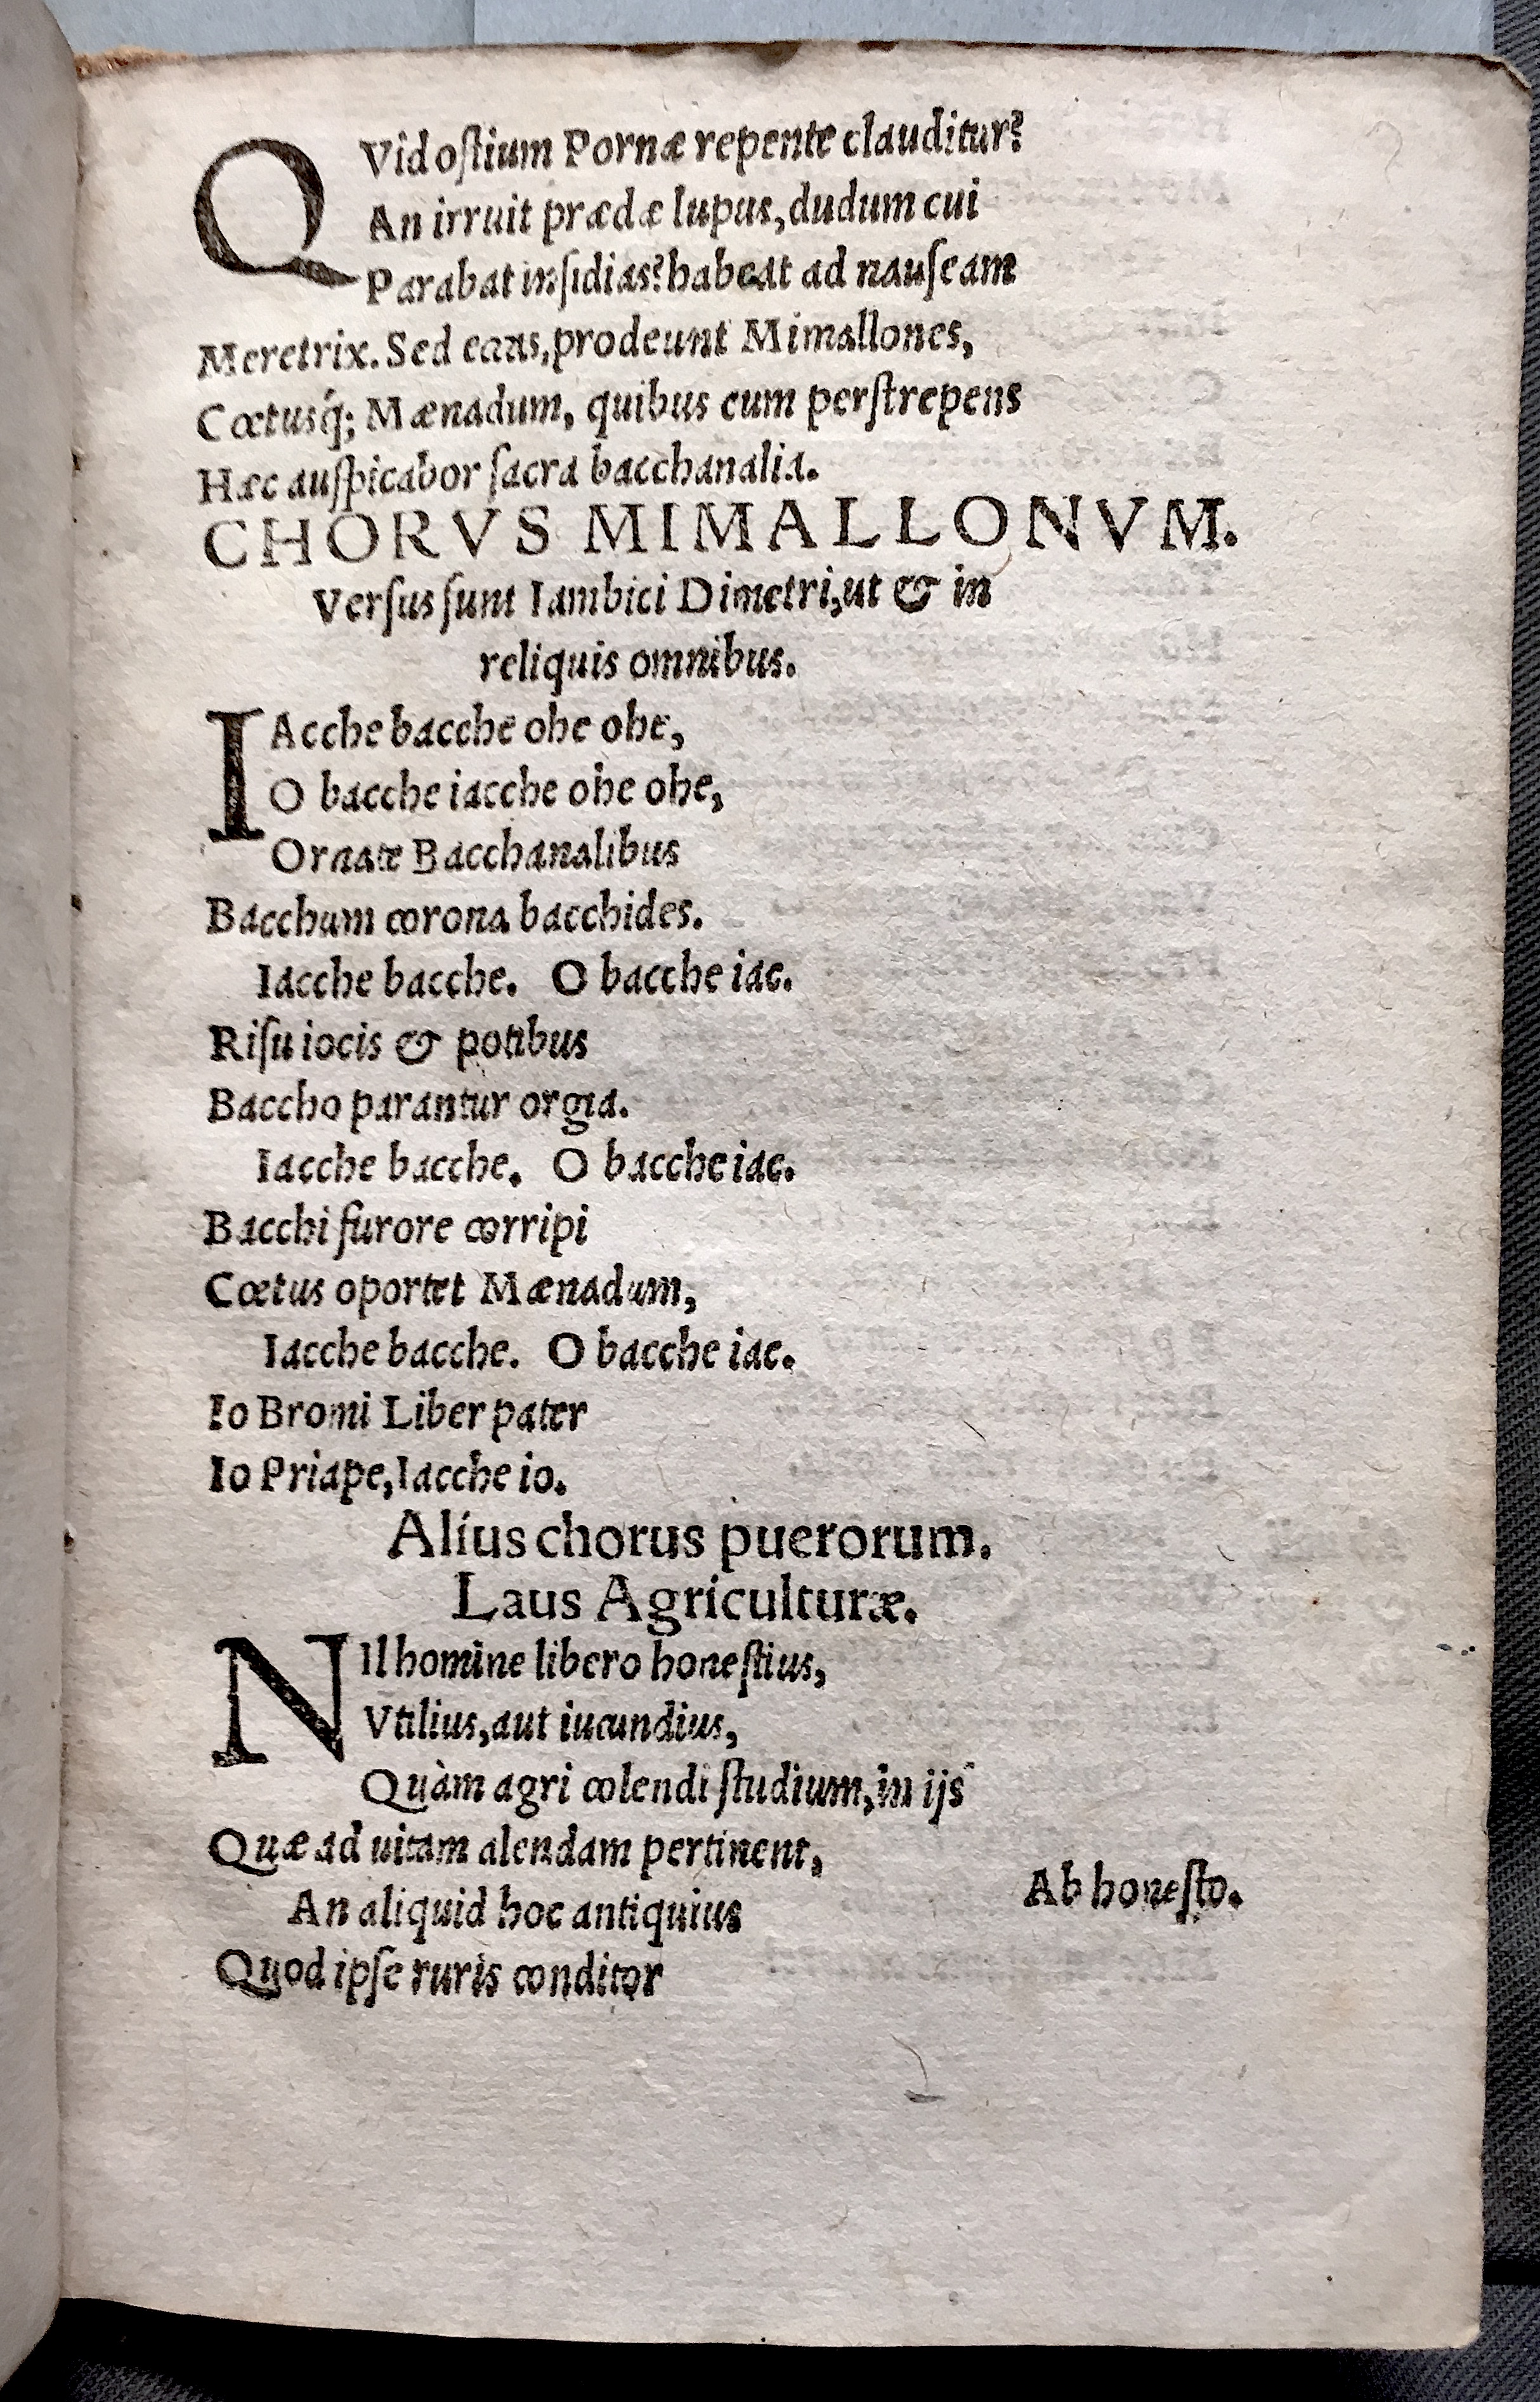 QVid ostium Pornæ repente clauditur?
An irruit prædæ lupus, dudum cui
Parabat insidias? habeat ad nauseam
Meretrix. Sed eccas, prodeunt Mimallones,
Cœtusq́; Mænadum, quibus cum perstrepens
Hæc auspicabor sacra bacchanalia.
CHORVS MIMALLONVM.
Versus sunt Iambici Dimetri, ut & in
reliquis omnibus.
IAcche bacche ohe ohe,
O bacche iacche ohe ohe,
Ornatæ Bacchanalibus
Bacchum corona bacchides.
Iacche bacche. O bacche iac.
Risu iocis & potibus
Baccho parantur orgia.
Iacche bacche. O bacche iac.
Bacchi furore corripi
Cœtus oportet Mænadum,
Iacche bacche. O bacche iac.
Io Bromi Liber pater
Io Priape, Iacche io.
Alius chorus puerorum.
Laus Agriculturæ.
NIl homine libero honestius,
Vtilius, aut iucundius,
Quàm agri colendi studium, in ijs
Quæ ad uitam alendam pertinent,
Ab honesto.
An aliquid hoc antiquius
Quod ipse ruris conditor